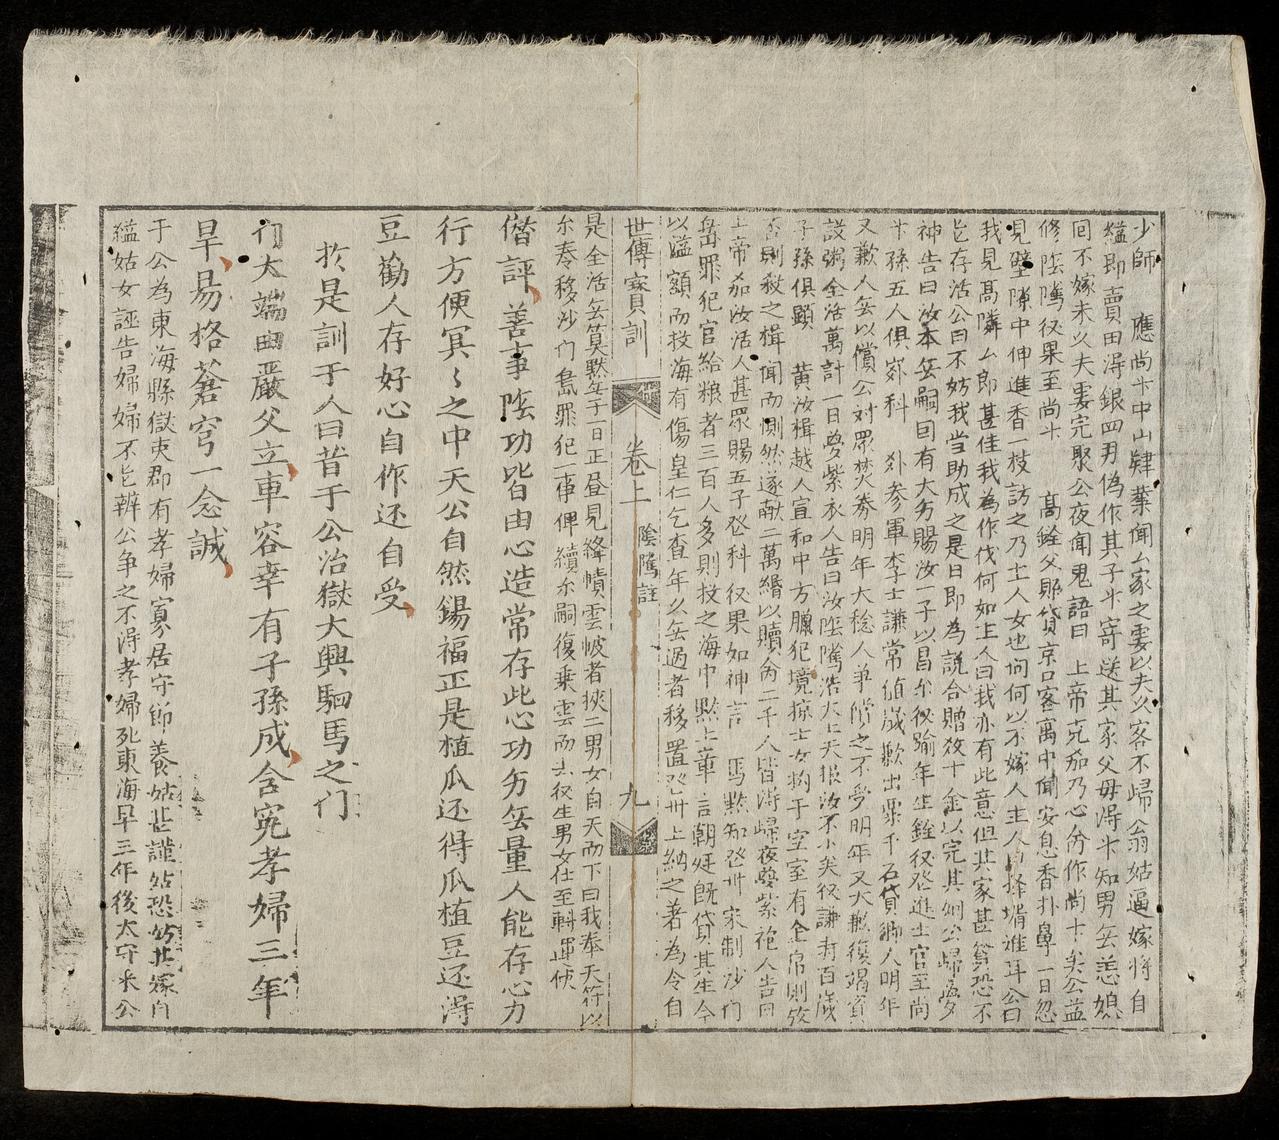 少師　應尚书中山肄業聞厶家之妻以夫久客不歸翁姑逼嫁將自
縊即賣田淂銀四両偽作其子书寄送其家父母淂书知男無恙媳
囬不嫁未久夫妻完聚公夜聞鬼語曰　上帝克茄乃心尔作尚书矣公益
修陰隲後果至尚书　高銓父賬貸京口客寓中聞安息香扑鼻一日忽
見壁隙中伸進香一枝訪之乃士人女也问何以不嫁人主人擇壻誰耳公曰
我見髙隣厶郎甚佳我為作伐何如主人曰我亦有此意但其家甚窮恐不
乞存活公曰不妨我当助成之是日即為説合贈数十金以完其姻公歸夢
神告曰汝本無嗣囙有大功賜汝一子以昌尔後踰年生銓後登進士官至尚
书孫五人俱登科　叅軍李士謙常値歳歉出粟千石貸鄉人明年
又歉人無以償公对眾焚券明年大稔人争償之不受明年又大歉復竭資
設粥全活萬計一日夢紫衣人告曰汝陰隲浩大上天报汝不小矣後謙壽百歳
子孫俱顕　黄汝楫越人宣和中方臘犯境掠士女拘于空室有金帛則放
否則殺之楫聞而惻然遂献二萬緡以贖尚二千人皆淂歸夜夢紫袍人告曰
上帝茄汝活人甚眾賜五子登科後果如神言　馬黙知登州宋制沙门
島罪犯官給粮者三百人多則投之海中黙上章言朝廷既貸其生今
以溢額而投海有傷皇仁乞查年久無過者移置登州上納之著為令自
世傳寳訓　卷上　陰隲註　九
是全活無筭黙無子一日正昼見絳幘雲帔者挾二男女自天而下曰我奉天符以
尔奏移沙门島罪犯一事俾續尔嗣復乗雲而去後生男女仕至転運使
偕評　善事陰功皆由心造常存此心功夯無量人能存心力
行方便冥〻之中天公自然錫福正是植瓜还得瓜植豆还淂
豆勸人存好心自作还自受
扵是訓于人曰昔于公治獄大興駟馬之门
行大端由嚴父立車容幸有子孫成含寃孝婦三年
旱易格蒼穹一念誠
于公為東海縣獄吏郡有孝婦寡居守節養姑甚謹姑恐妨其嫁自
縊姑女誣告婦婦不乞辨公争之不淂孝婦死東海旱三年後太守来公